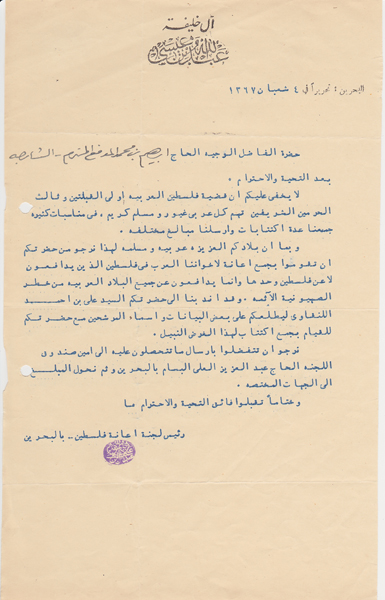 آل خليفة
عبدالله بن عيسى
البحرين : تحريراً في ٤ شعبان ١٣٦٧
حضرة الفاضل الوجيه الحاج ابراهيم بن محمد المدفع المحترم - الشارجه
بعد التحية والاحترام .
لا يخفى عليكم ان قضية فلسطين العربيه اولى القبلتين وثالث
الحرمين الشريفين تهم كل عربي غيور ومسلم كريم ، فى مناسبات كثيره
جمعنا عدة اكتتابات وارسلنا مبالغ مختلفه .
وبما ان بلادكم العزيزه عربيه ومسلمه لهذا نرجو من حضرتكم
ان تقوموا بجمع اعانة لاخواننا العرب فى فلسطين الذين يدافعون
لا عن فلسطين وحدها وانما يدافعون عن جميع البلاد العربيه من خطر
الصهيونية الآثمه . وقد اندبنا الى حضرتكم السيد على بن احمد
ليطلعكم على بعض البيانات واسماء المرشحين مع حضرتكم
للقيام بجمع اكتتاب لهذا الغرض النبيل .
نرجو ان تتفضلوا بارسال ما تتحصلون عليه الى امين صندوق
اللجنه الحاج عبد العزيز العلى البسام بالبحرين وثم نحول المبلغ
الى الجهات المختصه .
وختاماً تقبلوا فائق التحية والاحترام ما
رئيس لجنة اعانة فلسطين - بالبحرين